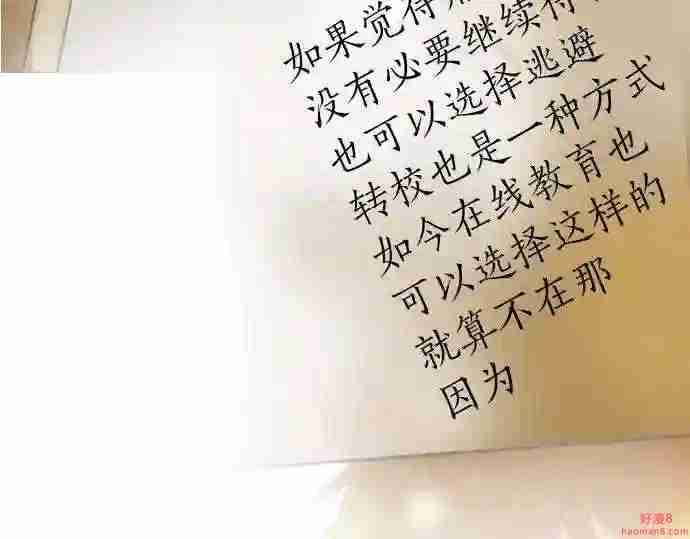 如果觉得
没有必要继续待
也可以选择逃避
转校也是一种方式
如今在线教育也
可以选择这样的
就算不在那
因为
好漫8
haoman8.com